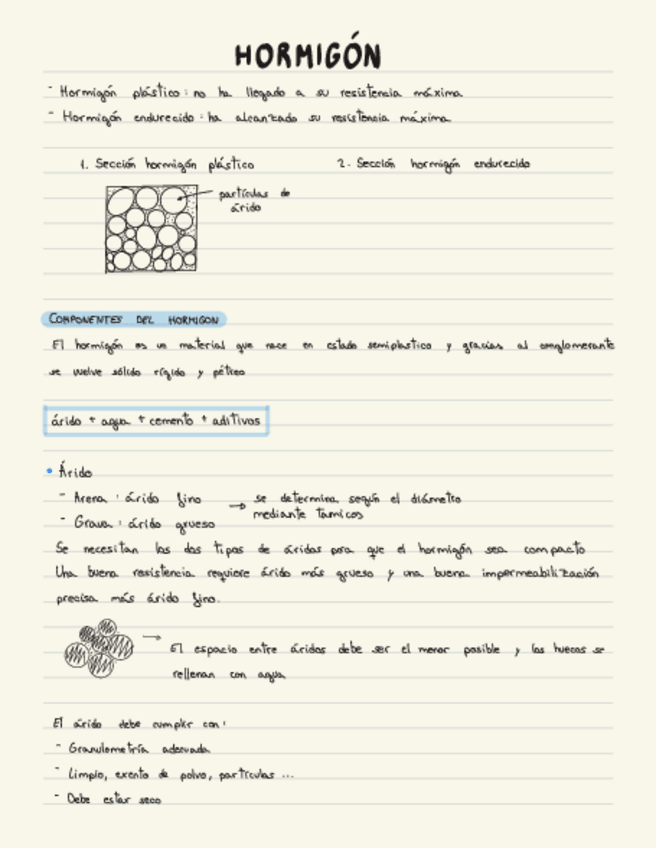 HORMIGÓN
- Hormigón plástico: no ha llegado a su resistencia máxima
- Hormigón endurecido: ha alcanzado su resistencia máxima
1. Sección hormigón plástico
2. Sección hormigón endurecido
partículas de
árido
COMPONENTES DEL HORMIGON
El hormigón es un material que nace en estado semiplastico y gracias al conglomerante
se vuelve sólido rígido y pétreo
árido + agua + cemento + aditivos
• Árido
- Arena: árido fino
- Grava: árido grueso
→ se determina según el diámetro
mediante tamices
Se necesitan los dos tipos de áridos para que el hormigón sea compacto
Una buena resistencia requiere árido más grueso y una buena impermeabilización
precisa más árido fino.
→ El espacio entre áridos debe ser el menor posible y los huecos se
rellenan con agua
El árido debe cumplir con:
- Granulometría adecuada
- Limpio, exento de polvo, partículas ...
- Debe estar seco